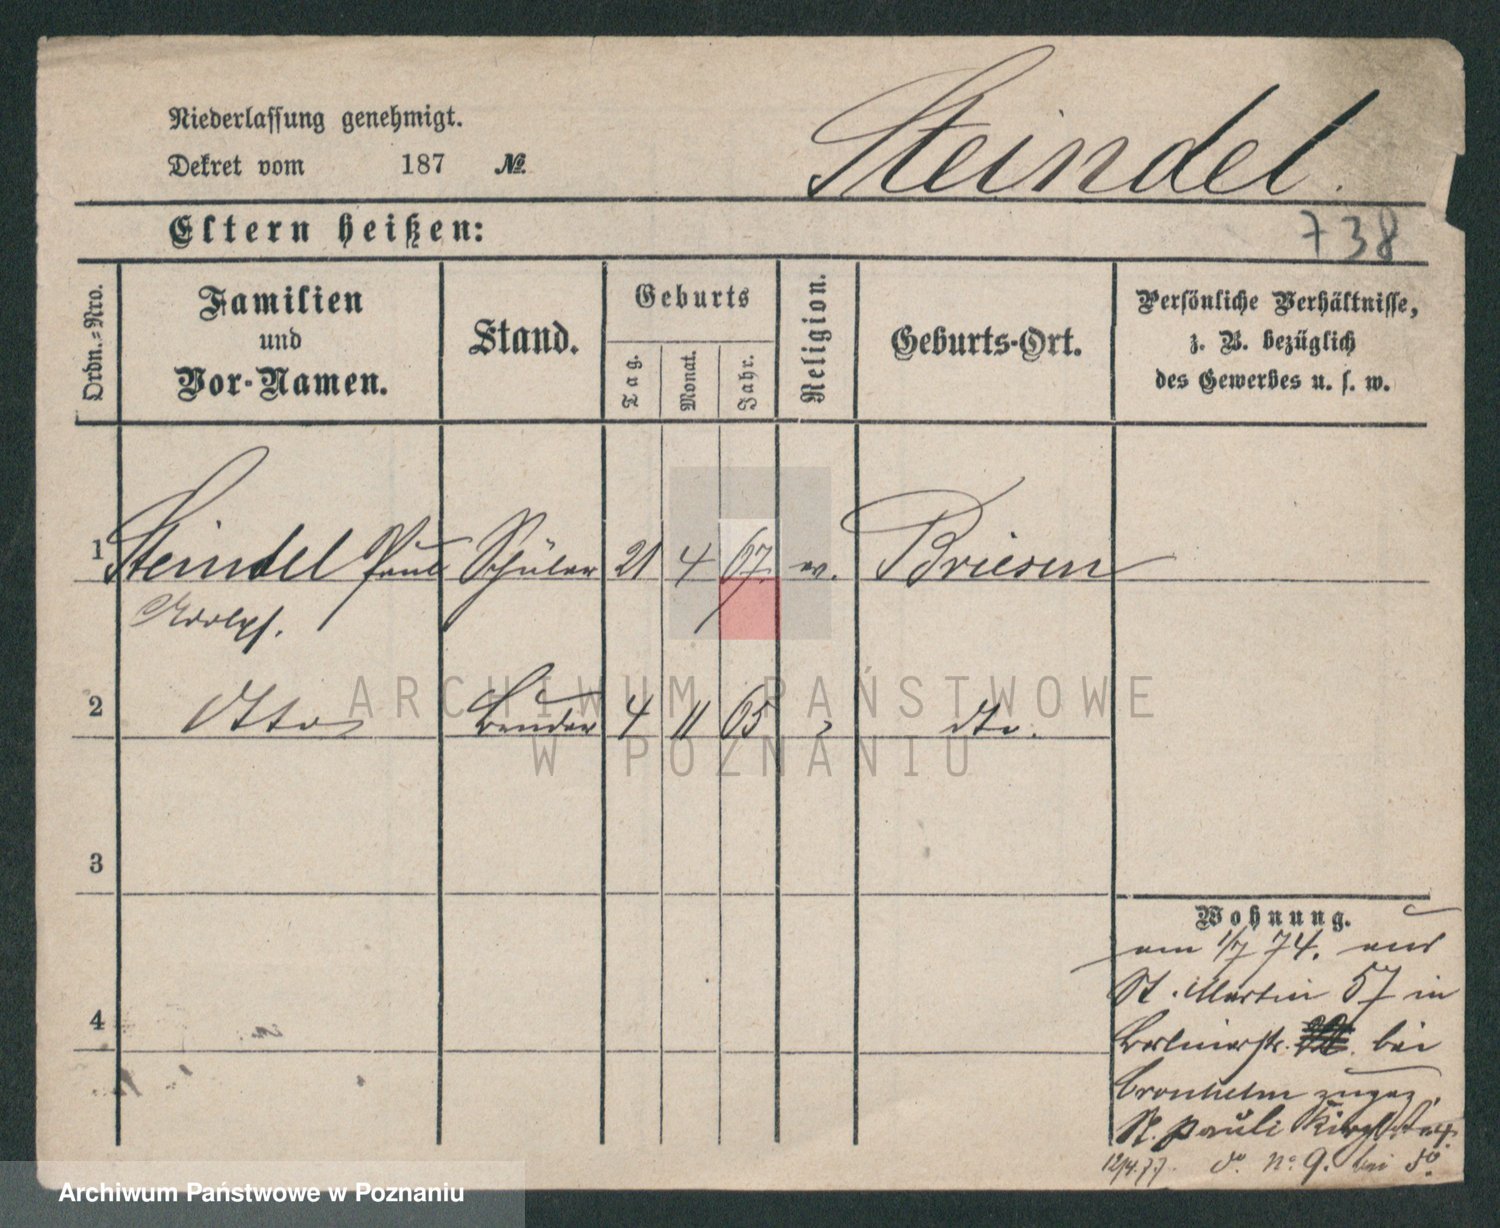 Steindel.
Niederlassung genehmigt.
Dekret vom 187 №
Eltern heißen:
738
Ordn.-Nro.
Familien
und
Vor-Namen.
Stand.
Geburts
Tag.
Monat.
Jahr.
Religion.
Geburts-Ort.
Persönliche Verhältnisse,
z. B. bezüglich
des Gewerbes u. s. w.
1 Steindel Paul Schüler 21 4 67. ev. Briesen
Adolph.
2 Otto Bruder 4 11 65 dto.
3
4
Wohnung.
am 1/7 74. aus
St. Martin 57 in
Berlinerstr. bei
Cronhelm zugez.
St. Pauli Kirchstr. 4.
12/4.77. do. No. 9. bei do.
ARCHIWUM PAŃSTWOWE
W POZNANIU
Archiwum Państwowe w Poznaniu